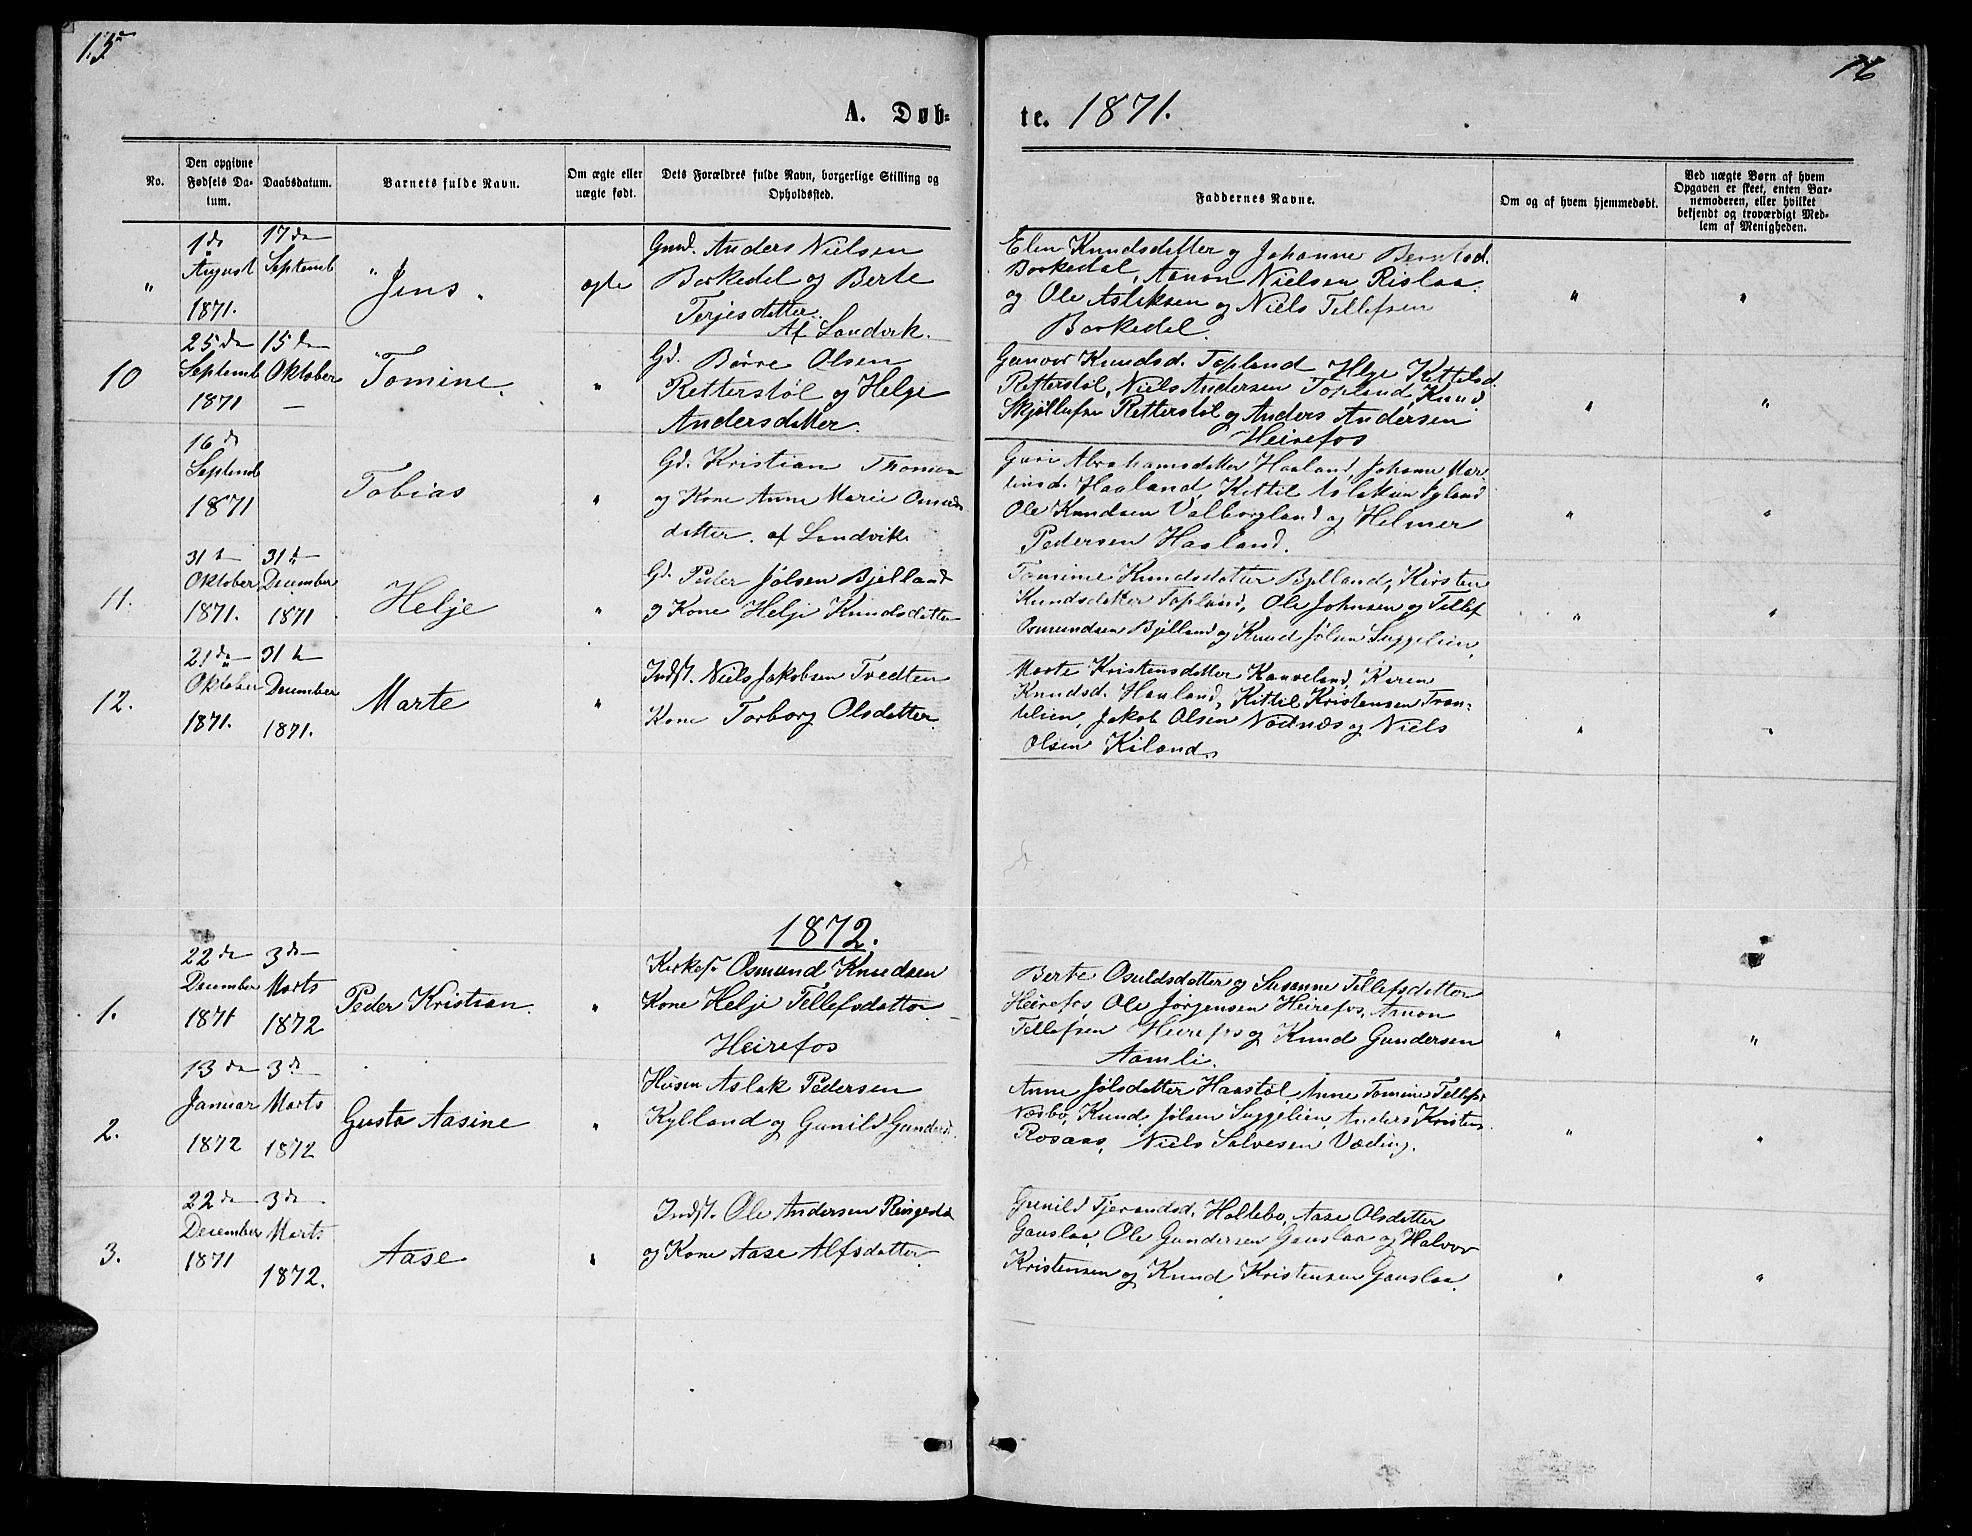 15
16
A. Døb-
te. 1871.
No.
Den opgivne Fødsels Da-
tum.
Daabsdatum.
Barnets fulde Navn.
Om ægte eller
uægte født.
Dets Forældres fulde Navn, borgerlige Stilling og
Opholdssted.
Faddernes Navne.
Om og af hvem hjemmedøbt.
Ved uægte Børn af hvem
Opgaven er skeet, enten Bar-
nemoderen, eller hvilket
bekjendt og troværdigt Med-
lem af Menigheden.
"
1ste
August
1871.
17de
Septemb
Jens.
ægte
Gmd. Anders Nielsen
Borkedal og Berte
Terjesdatter.
Af Landvik.
Elen Knudsdatter og Johanne Berntsd.
Borkedal, Aanon Nielsen Rislaa
og Ole Aslaksen og Niels Tellefsen
Borkedal.
" "
10
25de
Septemb
1871
15de
Oktober
—
Tomine.
"
Gd. Børre Olsen
Retterstøl og Helje
Andersdatter.
Gunvor Knudsd. Topland Helge Kittelsd.
Retterstøl, Niels Andersen Topland, Knud
Skjøllufsen Retterstøl og Anders Andersen
Heirefos
" "
16de
Septemb
1871
Tobias
"
Gd. Kristian Thomsen
og Kone Anne Marie
datter. af Landvik
Guri Abrahamsdatter Haaland, Johanne Mar-
tinsd. Haaland, Kittil Aslaksen Igland
Ole Knudsen Valborgland og Helmer
Pedersen Haaland.
" "
11.
31te
Oktober
1871.
31te
December
1871
Helje
"
Gd. Peder Jølsen Bjelland
og Kone Helje Knudsdatter
Tomine Knudsdatter Bjelland, Kirsten
Knudsdatter Topland, Ole Johnsen og Tellef
Osmundsen Bjelland og Knud Jølsen Suggelien.
" "
12.
21de
Oktober
1871.
31te
December
1871.
Marte
"
Indst. Niels Jakobsen Tvedten
Kone Torborg Olsdatter.
Marte Kristensdatter Kaaveland, Karen
Knudsd. Haaland, Kittil Kristensen Tran-
telien, Jakob Olsen Nodnæs og Niels
Olsen Kiland.
" "
1872.
1.
22de
December
1871
3de
Marts
1872
Peder Kristian.
"
Kirkes. Osmund Knudsen
Kone Helje Tellefsdatter
Heirefos
Berte Osuldsdatter og Susanne Tellefsdatter
Heirefos, Ole Jørgensen Heirefos, Aanon
Tellefsen Heirefos og Knud Gundersen
Aamli.
" "
2.
13de
Januar
1872
3de
Marts
1872
Gusta Aasine
"
Husm Aslak Pedersen
Kylland og Gunild Gundersd.
Anne Jølsdatter Haastøl, Anne Tomine Tellefsd
Næsbø, Knud Jølsen Suggelien, Anders Kristens.
Rosaas, Niels Salvesen Væding.
" "
3.
22de
Desember
1871
3de
Marts
1872.
Aase
"
Indst. Ole Andersen Ringedal
og Kone Aase Alfsdatter.
Gunild Tjerandsd. Hollebo, Aase Olsdatter
Gauslaa, Ole Gundersen Gauslaa og Halvor
Kristensen og Knud Kristensen Gauslaa.
" "